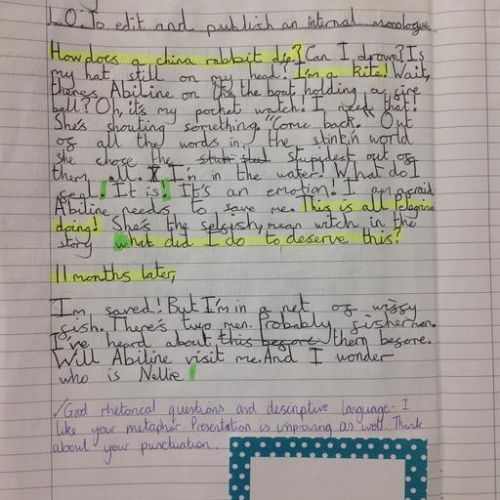 L.O: To edit and publish an internal monologue
How does a china rabbit die? Can I drown? Is
my hat still on my head? I'm a kite! Wait,
theres Abiline on the boat holding a fire
ball? Oh, it's my pocket watch! I need that!
She's shouting something. "Come back." Out
of all the words in the stink'n world
she chose the stupidest out of
them all. I'm in the water! What do I
feel! It is! It's an emotion! I am afraid
Abiline needs to save me. This is all Pelegrina
doing! She's the selfish, mean witch in the
story what did I do to deserve this?
11 months later,
I'm saved! But I'm in a net of wissy
fish. There's two men. Probably fishermen.
I've heard about this before them before.
Will Abiline visit me. And I wonder
who is Nellie!
✓Good rhetorical questions and descriptive language. I
like your metaphor. Presentation is improving as well. Think
about your punctuation.